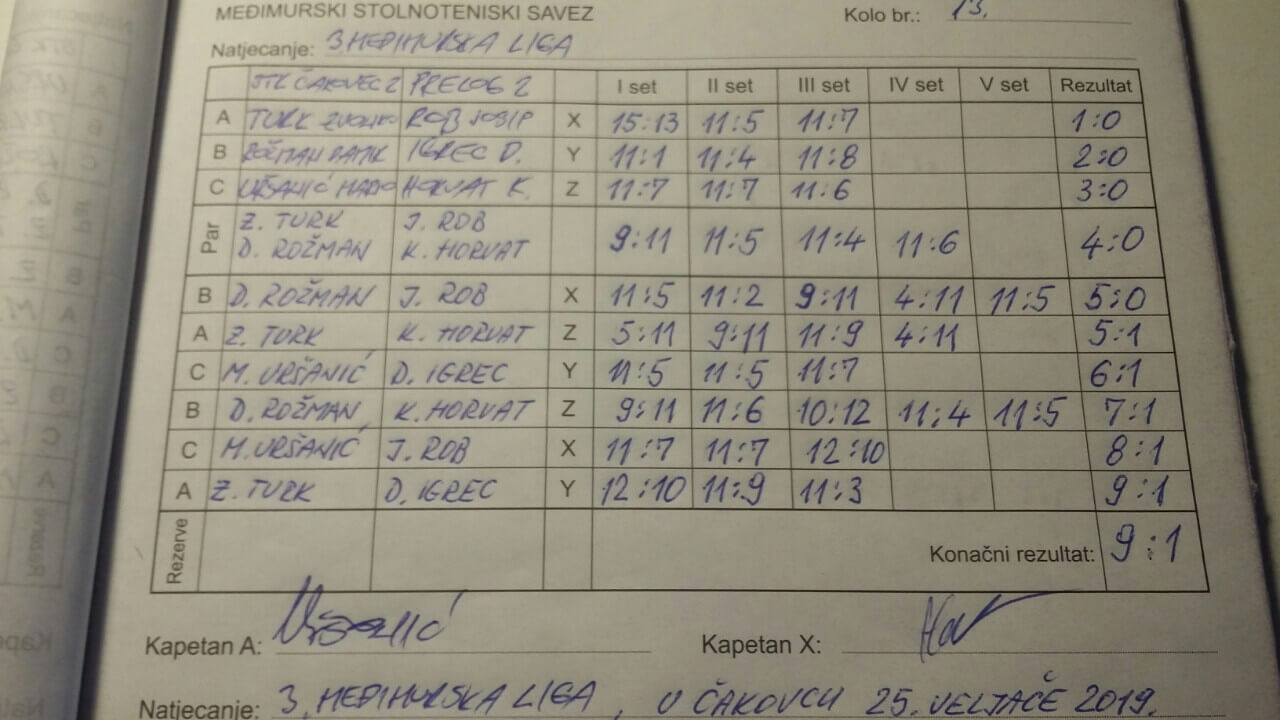 MEĐIMURSKI STOLNOTENISKI SAVEZ Kolo br.: 13.
Natjecanje: 3. MEĐIMURSKA LIGA
STK ČAKOVEC 2 PRELOG 2 I set II set III set IV set V set Rezultat
A TURK ROB JOSIP X 15:13 11:5 11:7 1:0
B ROŽMAN IGREC D. Y 11:1 11:4 11:8 2:0
C URŠANIĆ HORVAT K. Z 11:7 11:7 11:6 3:0
Par Z. TURK J. ROB 9:11 11:5 11:4 11:6 4:0
D. ROŽMAN K. HORVAT
B D. ROŽMAN J. ROB X 11:5 11:2 9:11 4:11 11:5 5:0
A Z. TURK K. HORVAT Z 5:11 9:11 11:9 4:11 5:1
C M. URŠANIĆ D. IGREC Y 11:5 11:5 11:7 6:1
B D. ROŽMAN K. HORVAT Z 9:11 11:6 10:12 11:4 11:5 7:1
C M. URŠANIĆ J. ROB X 11:7 11:7 12:10 8:1
A Z. TURK D. IGREC Y 12:10 11:9 11:3 9:1
Rezerve Konačni rezultat: 9:1
Kapetan A: Kapetan X:
Natjecanje: 3. MEĐIMURSKA LIGA, U ČAKOVCU 25. VELJAČE 2019.